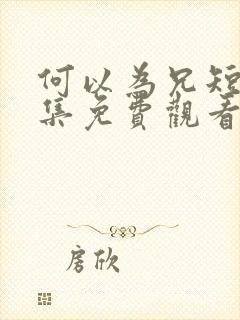 何以為兄短
集免費觀看
房欣